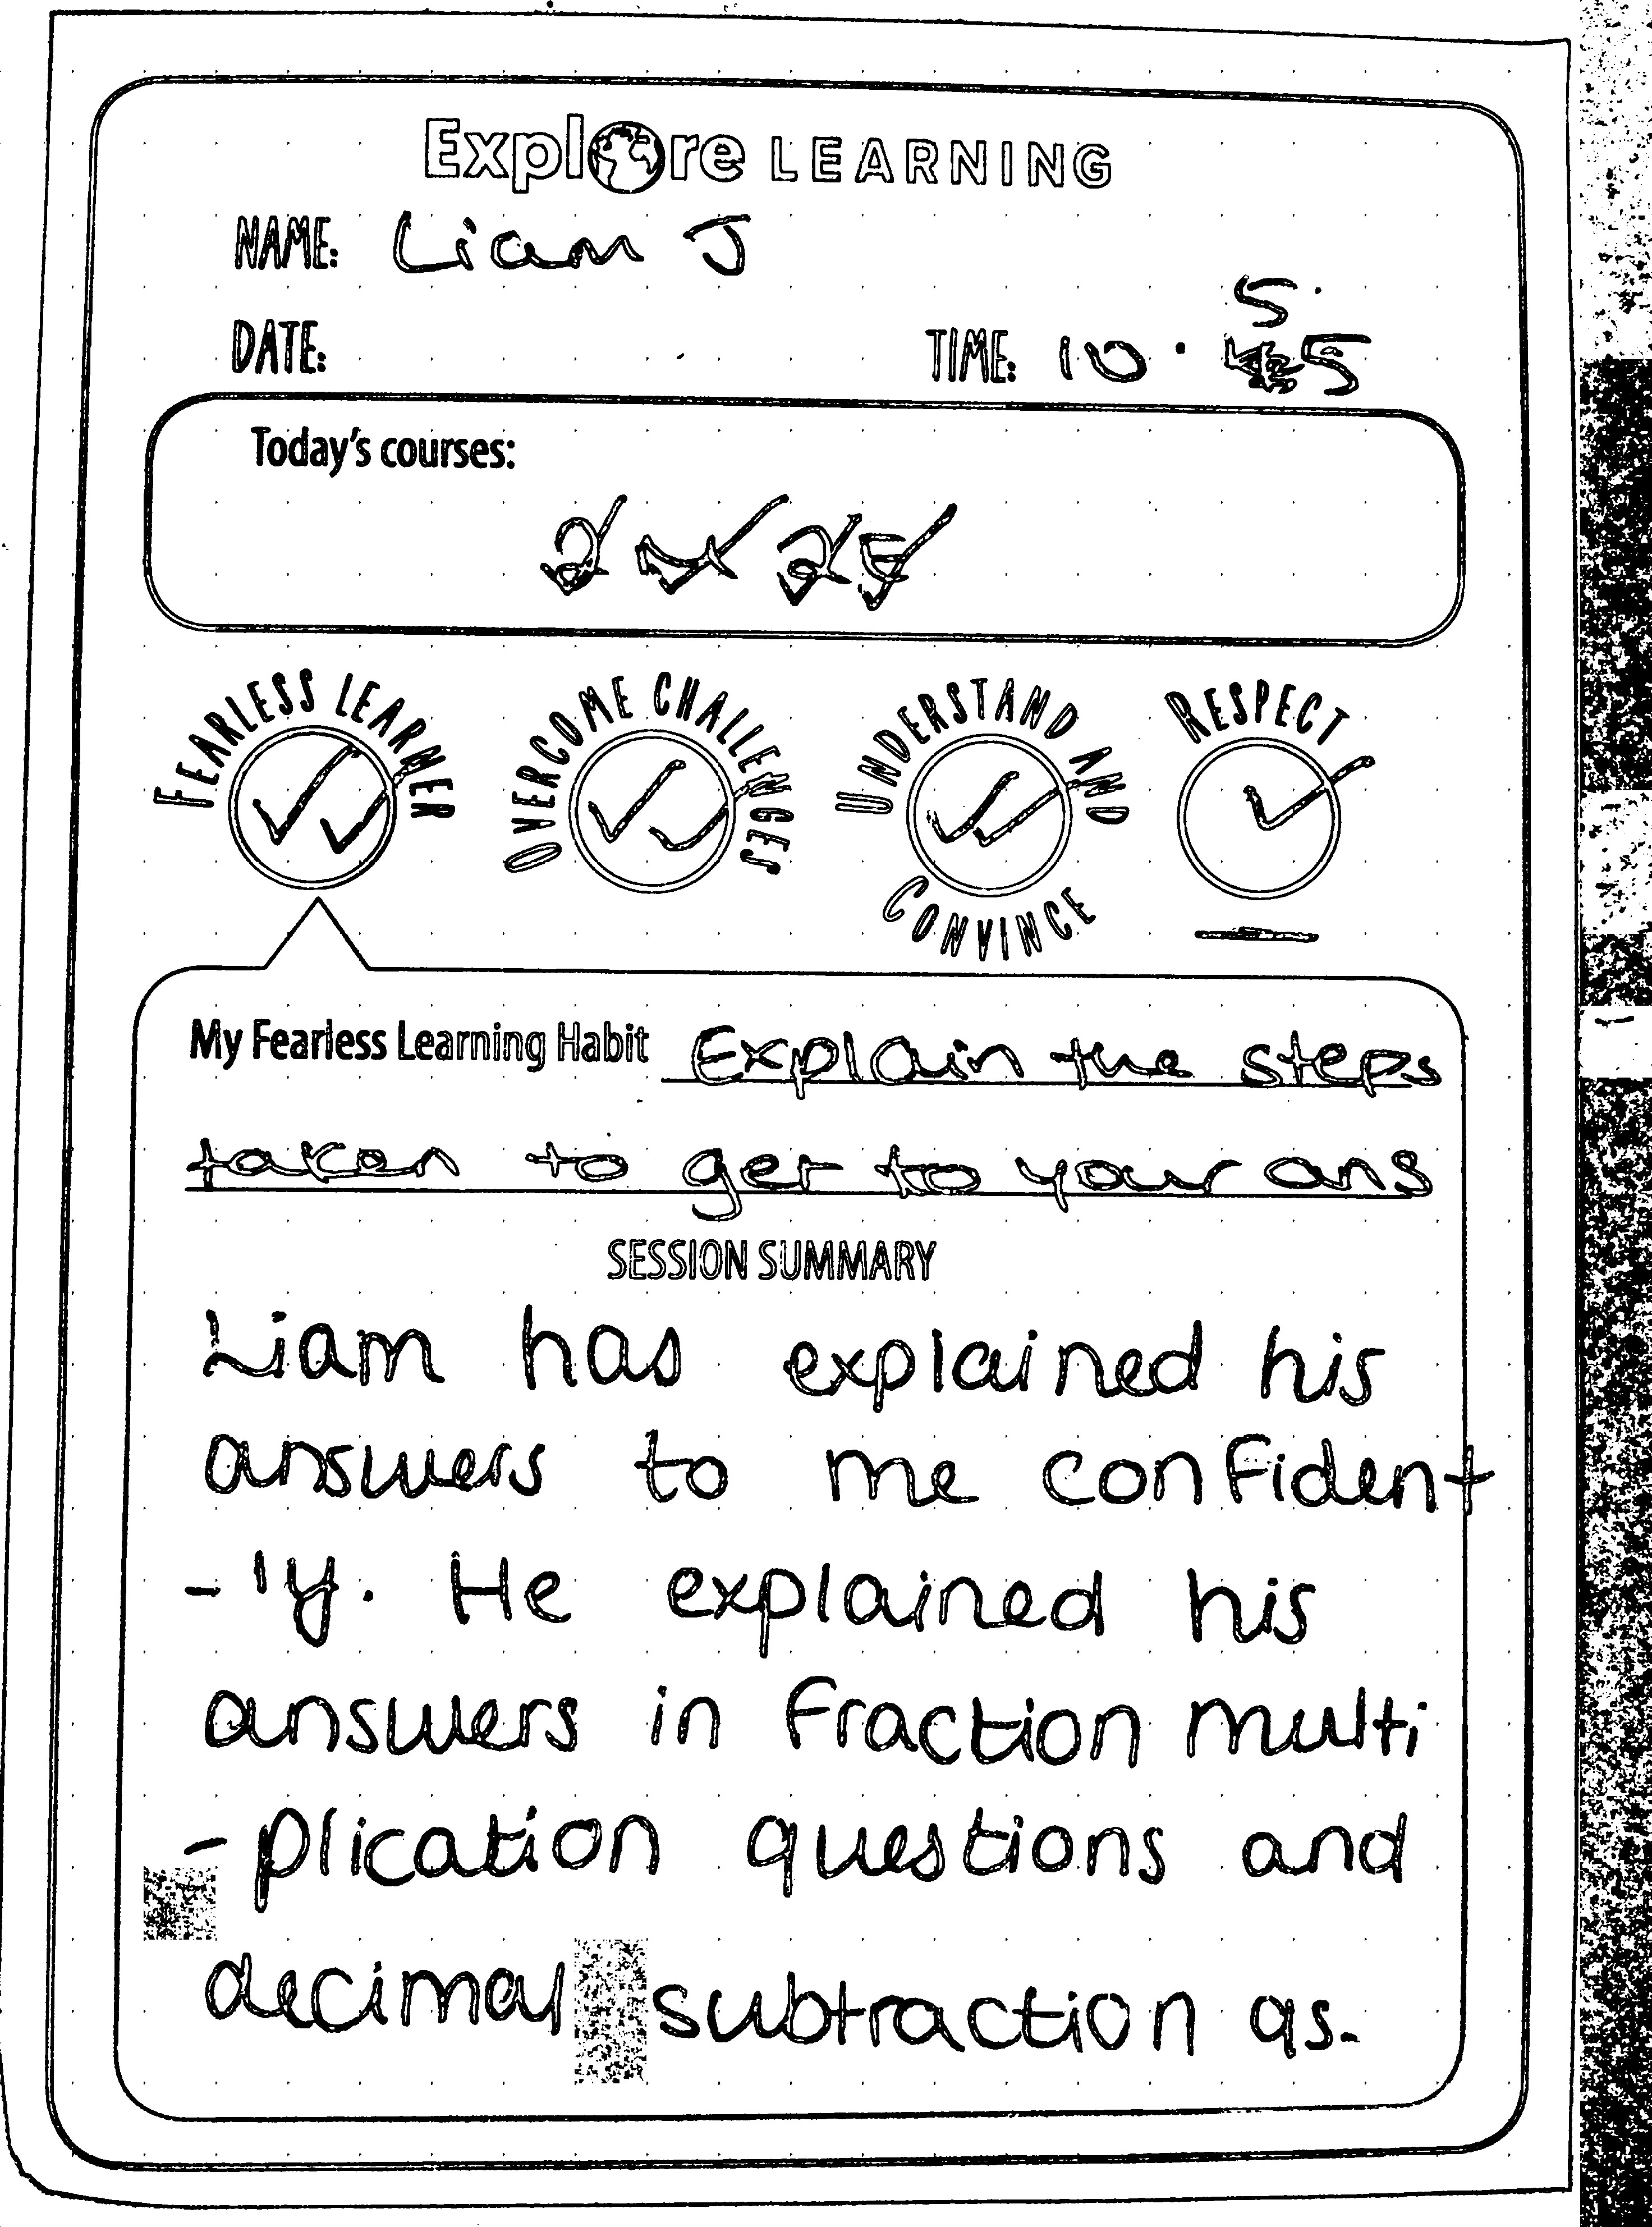 Explore LEARNING
NAME: Liam J
DATE:
TIME: 10.55
Today's courses:
2 M 2 E
FEARLESS LEARNER
OVERCOME CHALLENGES
UNDERSTAND AND CONVINCE
RESPECT
My Fearless Learning Habit Explain the steps
taken to get to your ans
SESSION SUMMARY
Liam has explained his
answers to me confident
-ly. He explained his
answers in fraction multi
-plication questions and
decimal subtraction qs.